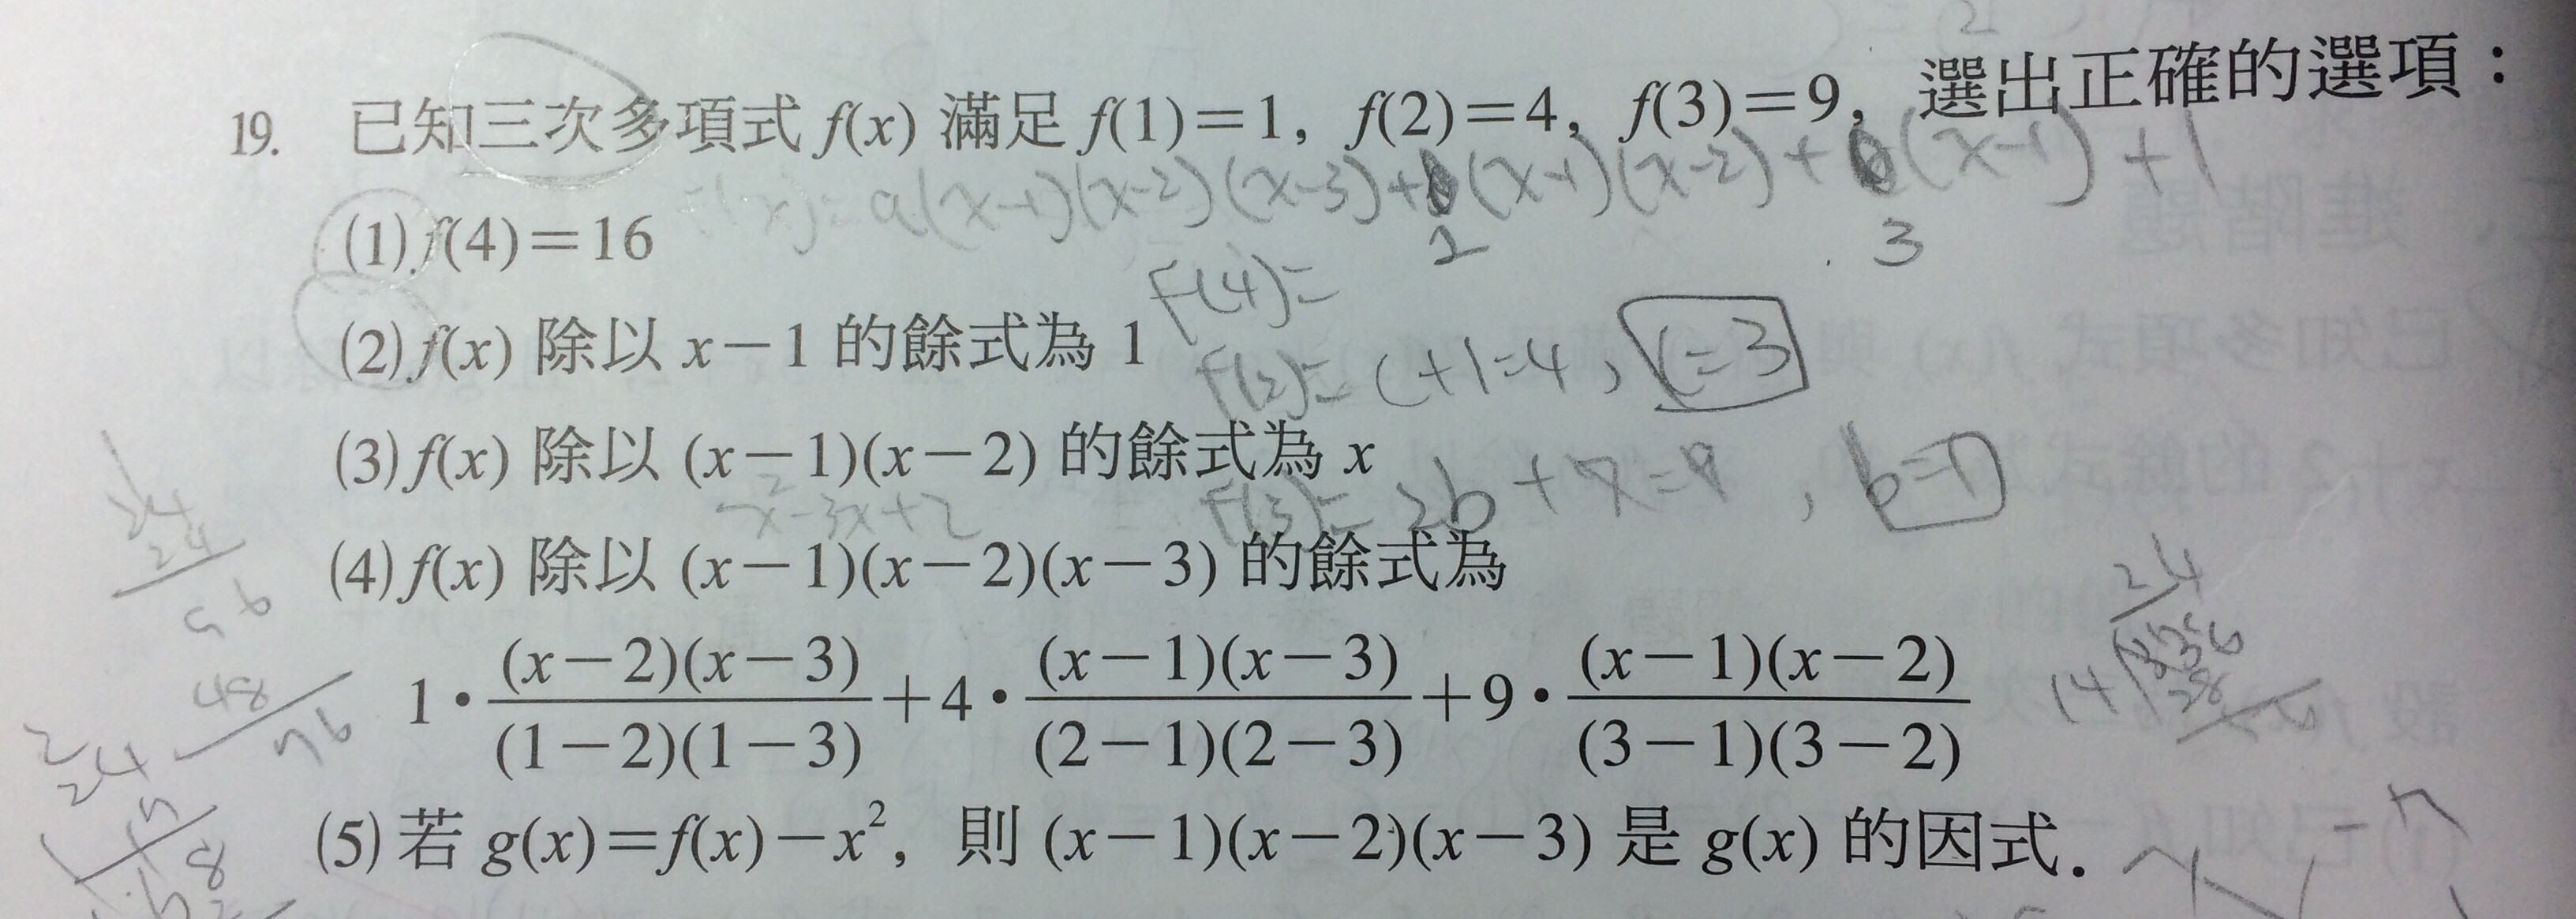 19. 已知三次多項式 f(x) 滿足 f(1)=1, f(2)=4, f(3)=9, 選出正確的選項：
f(x)=a(x-1)(x-2)(x-3)+b(x-1)(x-2)+(x-1)+1
1 3
(1) f(4)=16
F(4)=
(2) f(x) 除以 x-1 的餘式為 1
f(2)=c+1=4, c=3
(3) f(x) 除以 (x-1)(x-2) 的餘式為 x
x²-3x+2 f(3)=2b+7=9, b=1
(4) f(x) 除以 (x-1)(x-2)(x-3) 的餘式為
1·(x-2)(x-3)/(1-2)(1-3)+4·(x-1)(x-3)/(2-1)(2-3)+9·(x-1)(x-2)/(3-1)(3-2)
(5) 若 g(x)=f(x)-x², 則 (x-1)(x-2)(x-3) 是 g(x) 的因式.
24
24
96
48
96
24
24
14